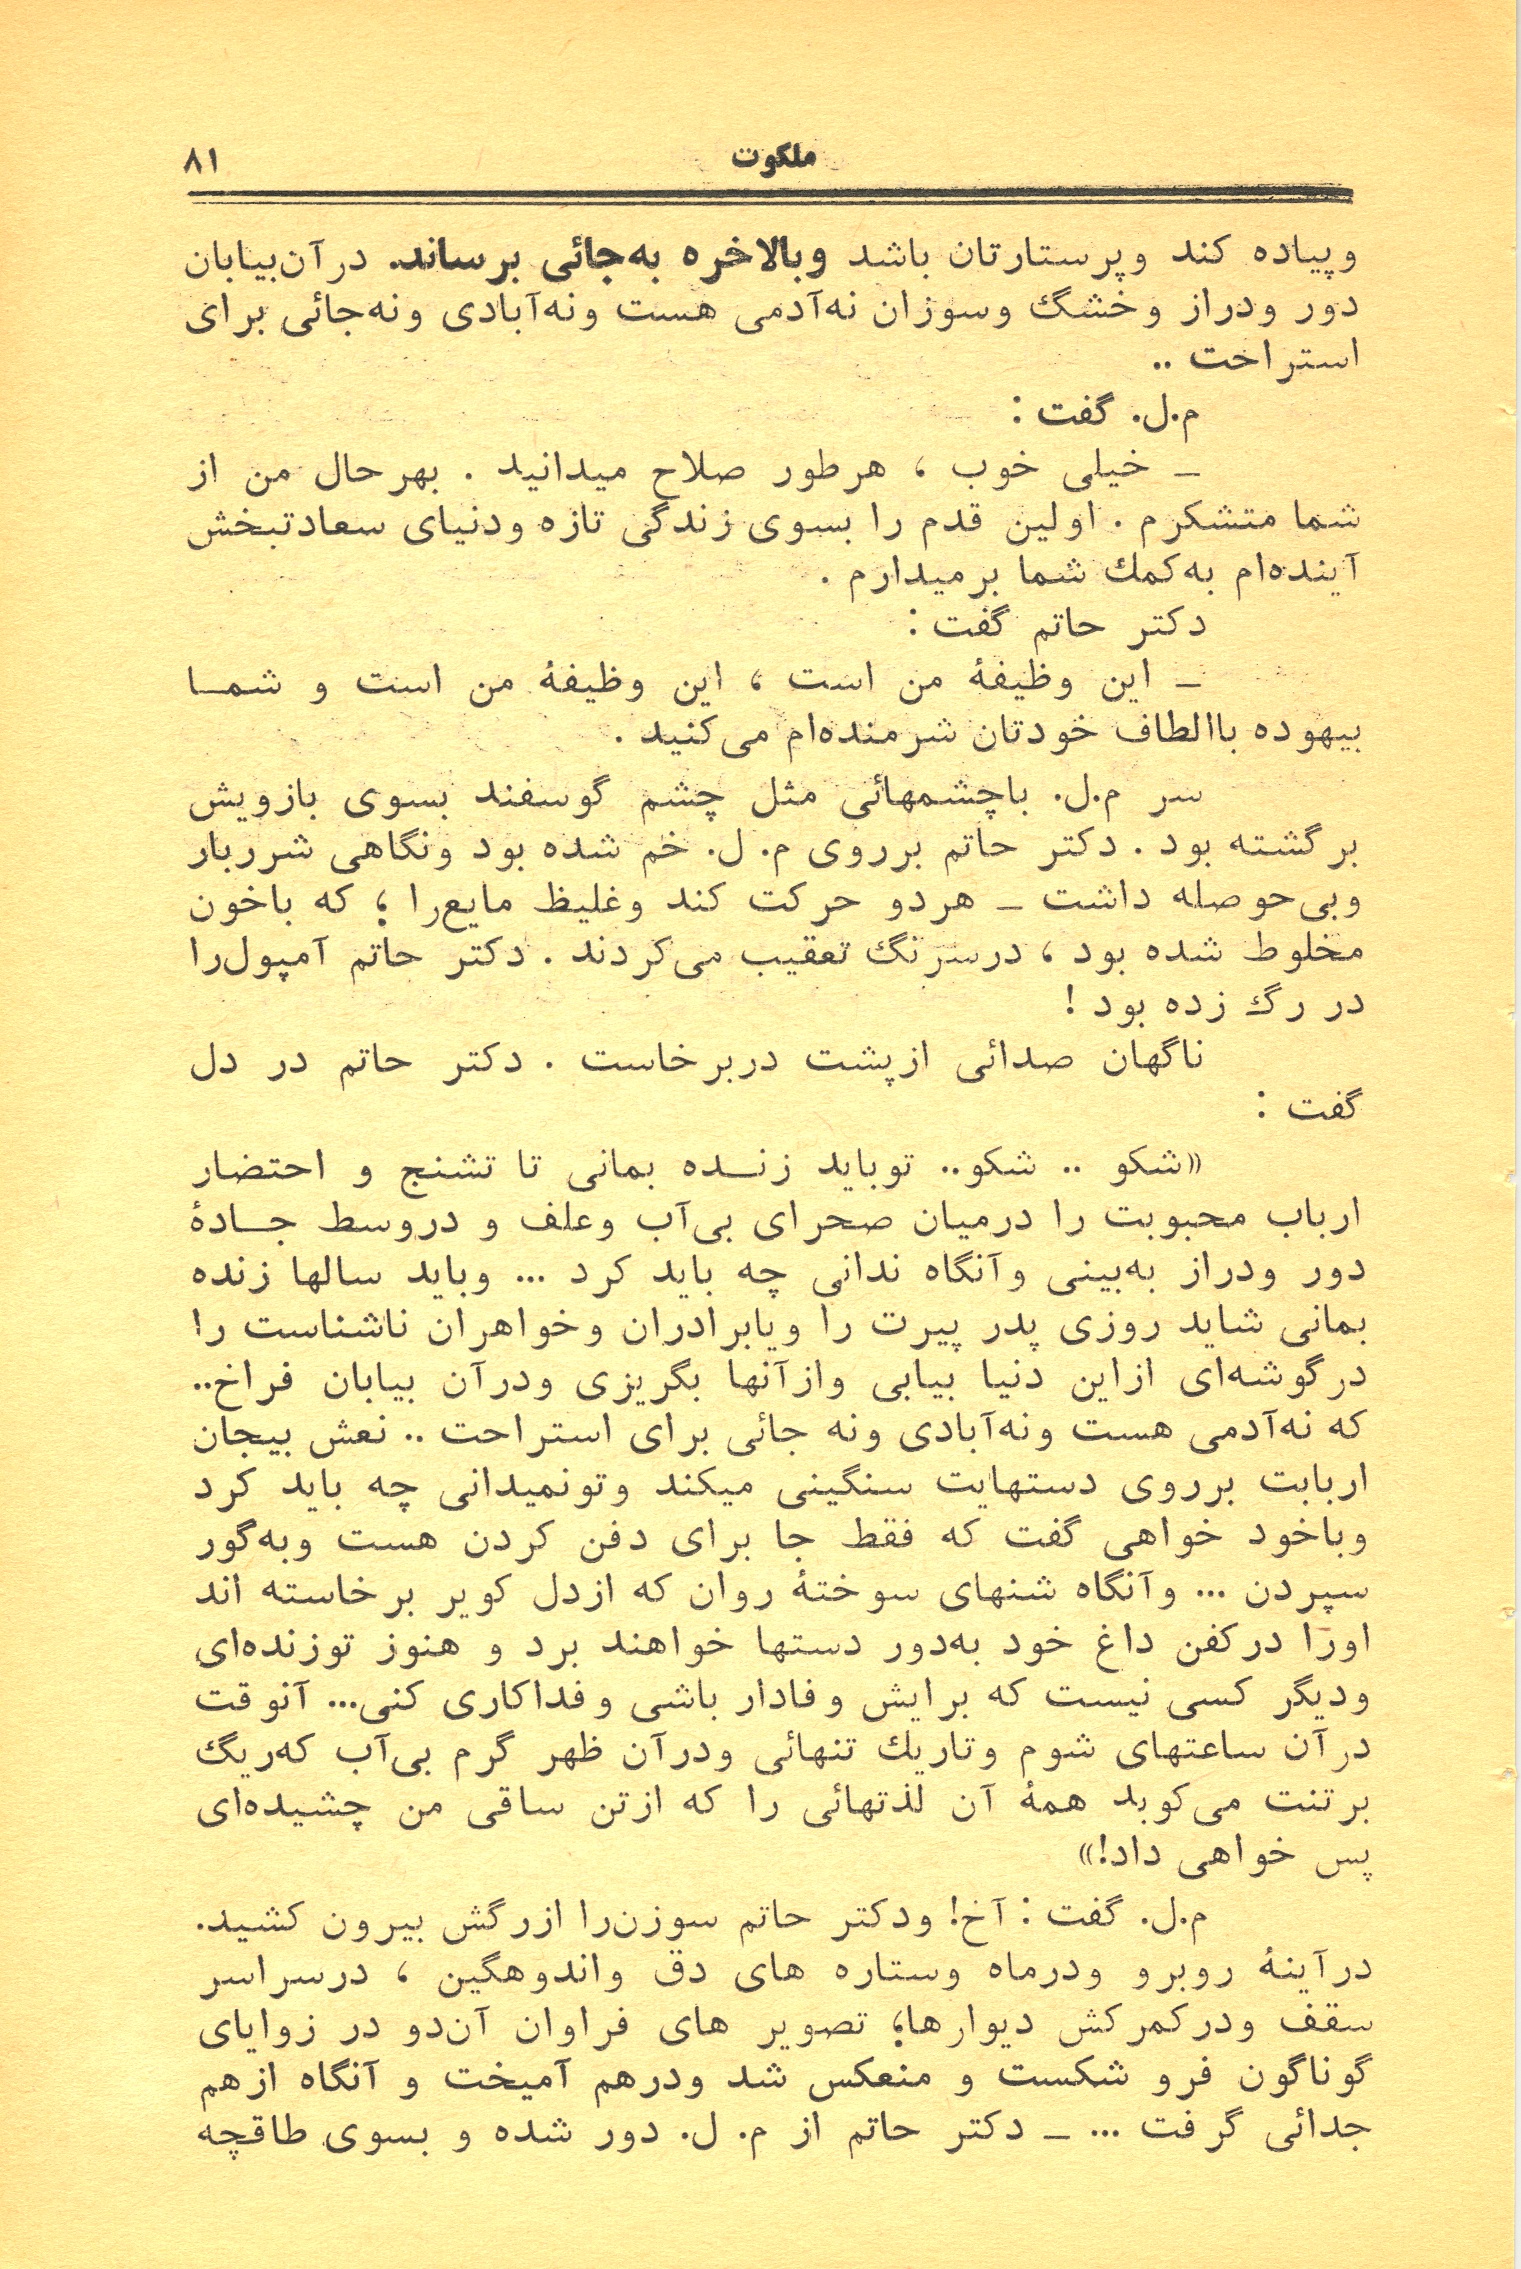 ملکوت ۸۱
وپیاده کند وپرستارتان باشد وبالاخره به‌جائی برساند. درآن‌بیابان
دور ودراز وخشگ وسوزان نه‌آدمی هست ونه‌آبادی ونه‌جائی برای
استراحت ..
م.ل. گفت :
ـ خیلی خوب ، هرطور صلاح میدانید . بهرحال من از
شما متشکرم . اولین قدم را بسوی زندگی تازه ودنیای سعادتبخش
آینده‌ام به‌کمك شما برمیدارم .
دکتر حاتم گفت :
ـ این وظیفهٔ من است ، این وظیفهٔ من است و شمـا
بیهوده باالطاف خودتان شرمنده‌ام می‌کنید .
سر م.ل. باچشمهائی مثل چشم گوسفند بسوی بازویش
برگشته بود . دکتر حاتم برروی م. ل. خم شده بود ونگاهی شرربار
وبی‌حوصله داشت ـ هردو حرکت کند وغلیظ مایع‌را ؛ که باخون
مخلوط شده بود ، درسرنگ تعقیب می‌کردند . دکتر حاتم آمپول‌را
در رگ زده بود !
ناگهان صدائی ازپشت دربرخاست . دکتر حاتم در دل
گفت :
«شکو .. شکو.. توباید زنـده بمانی تا تشنج و احتضار
ارباب محبوبت را درمیان صحرای بی‌آب وعلف و دروسط جـادهٔ
دور ودراز به‌بینی وآنگاه ندانی چه باید کرد ... وباید سالها زنده
بمانی شاید روزی پدر پیرت را ویابرادران وخواهران ناشناست را
درگوشه‌ای ازاین دنیا بیابی وازآنها بگریزی ودرآن بیابان فراخ..
که نه‌آدمی هست ونه‌آبادی ونه جائی برای استراحت .. نعش بیجان
اربابت برروی دستهایت سنگینی میکند وتونمیدانی چه باید کرد
وباخود خواهی گفت که فقط جا برای دفن کردن هست وبه‌گور
سپردن ... وآنگاه شنهای سوختهٔ روان که ازدل کویر برخاسته اند
اورا درکفن داغ خود به‌دور دستها خواهند برد و هنوز توزنده‌ای
ودیگر کسی نیست که برایش وفادار باشی وفداکاری کنی... آنوقت
درآن ساعتهای شوم وتاریك تنهائی ودرآن ظهر گرم بی‌آب که‌ریگ
برتنت می‌کوبد همهٔ آن لذتهائی را که ازتن ساقی من چشیده‌ای
پس خواهی داد!»
م.ل. گفت : آخ! ودکتر حاتم سوزن‌را ازرگش بیرون کشید.
درآینهٔ روبرو ودرماه وستاره های دق واندوهگین ، درسراسر
سقف ودرکمرکش دیوارها؛ تصویر های فراوان آن‌دو در زوایای
گوناگون فرو شکست و منعکس شد ودرهم آمیخت و آنگاه ازهم
جدائی گرفت ... ـ دکتر حاتم از م. ل. دور شده و بسوی طاقچه